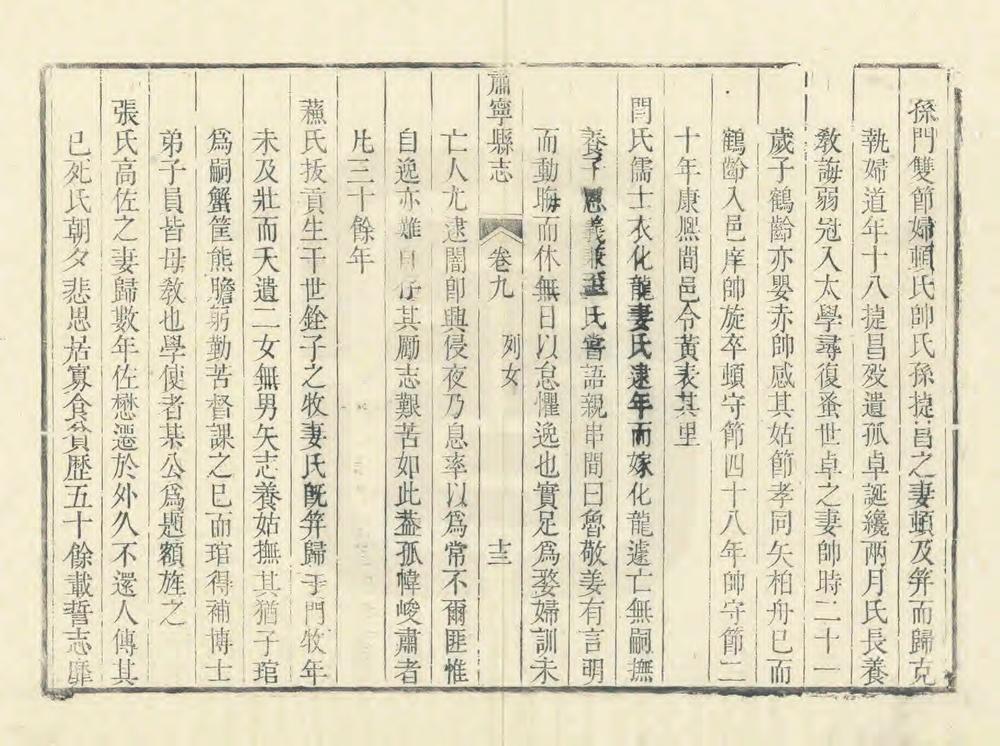 孫門雙節婦頓氏帥氏孫捷昌之妻頓及笄而歸克
執婦道年十八捷昌歿遺孤卓誕纔兩月氏長養
敎誨弱冠入太學尋復蚤世卓之妻帥時二十一
歲子鶴齡亦嬰赤帥感其姑節孝同矢柏舟已而
鶴齡入邑庠帥旋卒頓守節四十八年帥守節二
十年康熙間邑令黃表其里
閆氏儒士衣化龍妻氏逮年而嫁化龍遽亡無嗣撫
養子恩義兼至氏嘗語親串間曰魯敬姜有言明
而動晦而休無日以怠懼逸也實足爲嫠婦訓未
肅寧縣志 卷九 列女 十三
亡人尤逮闇卽興侵夜乃息率以爲常不爾匪惟
自逸亦難自存其勵志艱苦如此葢孤幃峻肅者
凡三十餘年
蘓氏拔貢生干世銓子之牧妻氏旣笄歸于門牧年
未及壯而夭遺二女無男矢志養姑撫其猶子琯
爲嗣蟹筐熊膽躬勤苦督課之已而琯得補博士
弟子員皆母敎也學使者某公爲題額旌之
張氏高佐之妻歸數年佐懋遷於外久不還人傳其
已死氏朝夕悲思居寡食貧歷五十餘載誓志靡